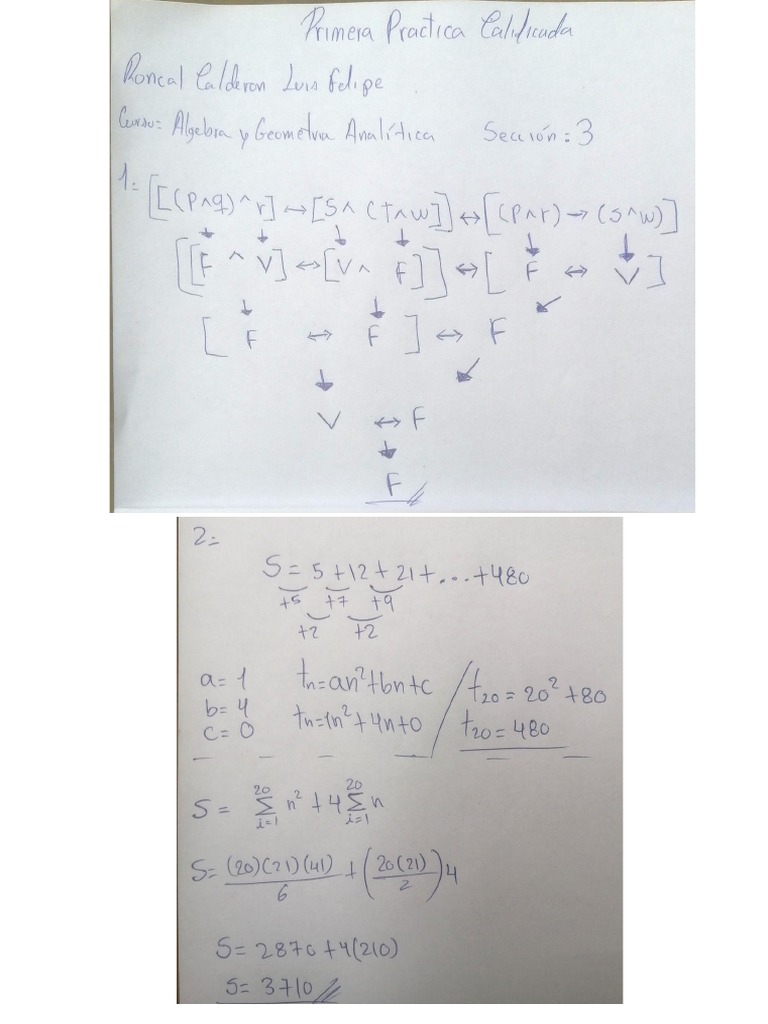 Primera Practica Calificada
Roncal Calderon Luis Felipe
Curso: Algebra y Geometria Analítica Sección: 3
1: [[(p∧q)∧r] ↔ [S∧(T∧w)]] ↔ [(p∧r) → (s∧w)]
[[F ∧ V] ↔ [V ∧ F]] ↔ [F ↔ V]
[F ↔ F] ↔ F
V ↔ F
F
2:
S = 5 + 12 + 21 + ... + 480
+5 +7 +9
+2 +2
a = 1 tn = an² + bn + c / t20 = 20² + 80
b = 4 tn = 1n² + 4n + 0 t20 = 480
c = 0
S = 20 Σ i=1 n² + 4 20 Σ i=1 n
S = (20)(21)(41)/6 + (20(21)/2)4
S = 2870 + 4(210)
S = 3710